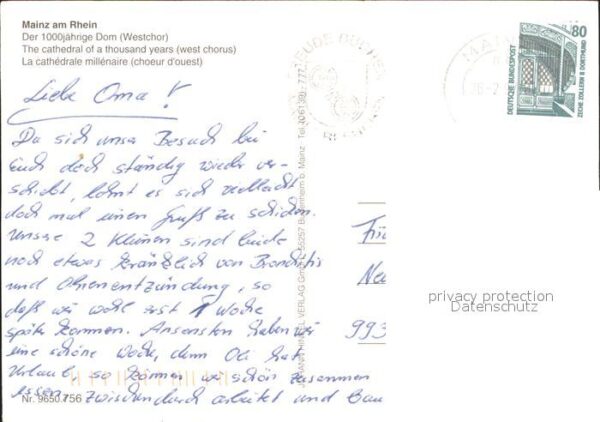 Mainz am Rhein
Der 1000jährige Dom (Westchor)
The cathedral of a thousand years (west chorus)
La cathédrale millénaire (choeur d'ouest)
Liebe Oma!
Da sich unser Besuch bei
Euch doch ständig wieder ver-
schiebt, lohnt es sich vielleicht
doch mal einen Gruß zu schicken.
Unsere 2 Kleinen sind beide
noch etwas kränklich von Bronchitis
und Ohrenentzündung, so
daß wir wohl erst 1 Woche
später kommen. Ansonsten haben wir
eine schöne Woche, denn Oli hat
Urlaub, so können wir schön zusammen
essen, zwischendurch arbeitet und
Nr. 9650.756
VERLAG
55257 Budenheim b. Mainz
Tel. (06139)
80
DEUTSCHE BUNDESPOST
ZECHE ZOLLERN II DORTMUND
MAINZ
993
privacy protection
Datenschutz